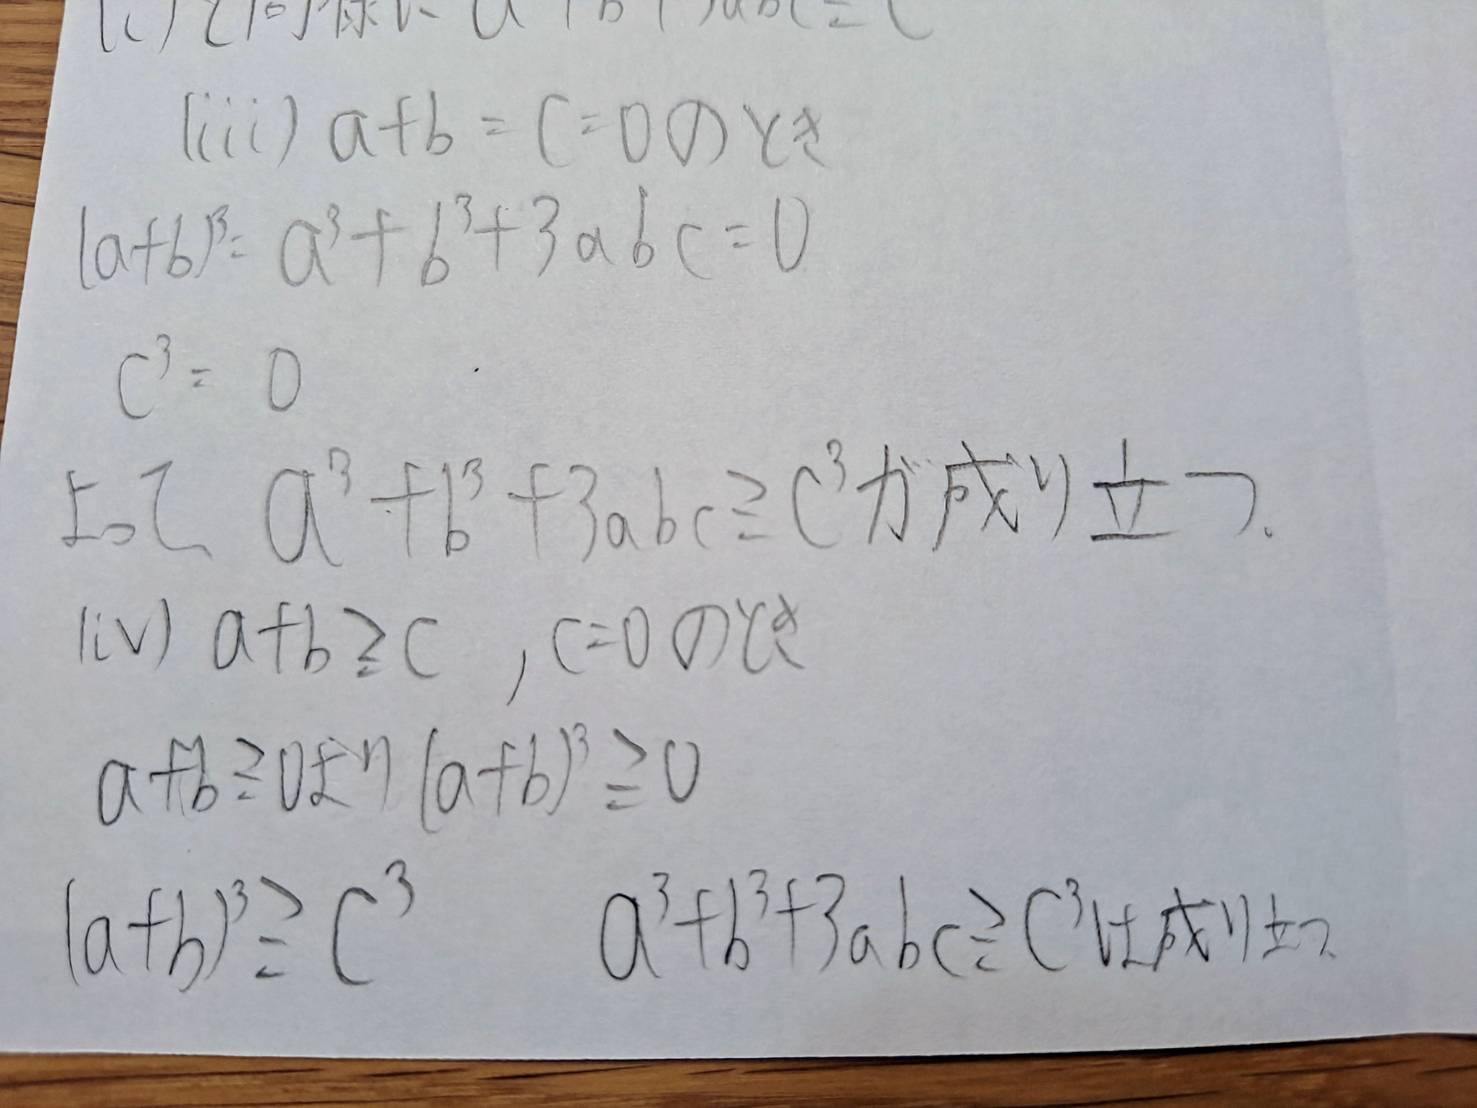 (i)と同様に a³+b³+3abc≧c³
(iii) a+b=c=0のとき
(a+b)³=a³+b³+3abc=0
c³=0
よって、a³+b³+3abc≧c³が成り立つ.
(iv) a+b≧c , c=0のとき
a+b≧0より(a+b)³≧0
(a+b)³≧c³ a³+b³+3abc≧c³は成り立つ